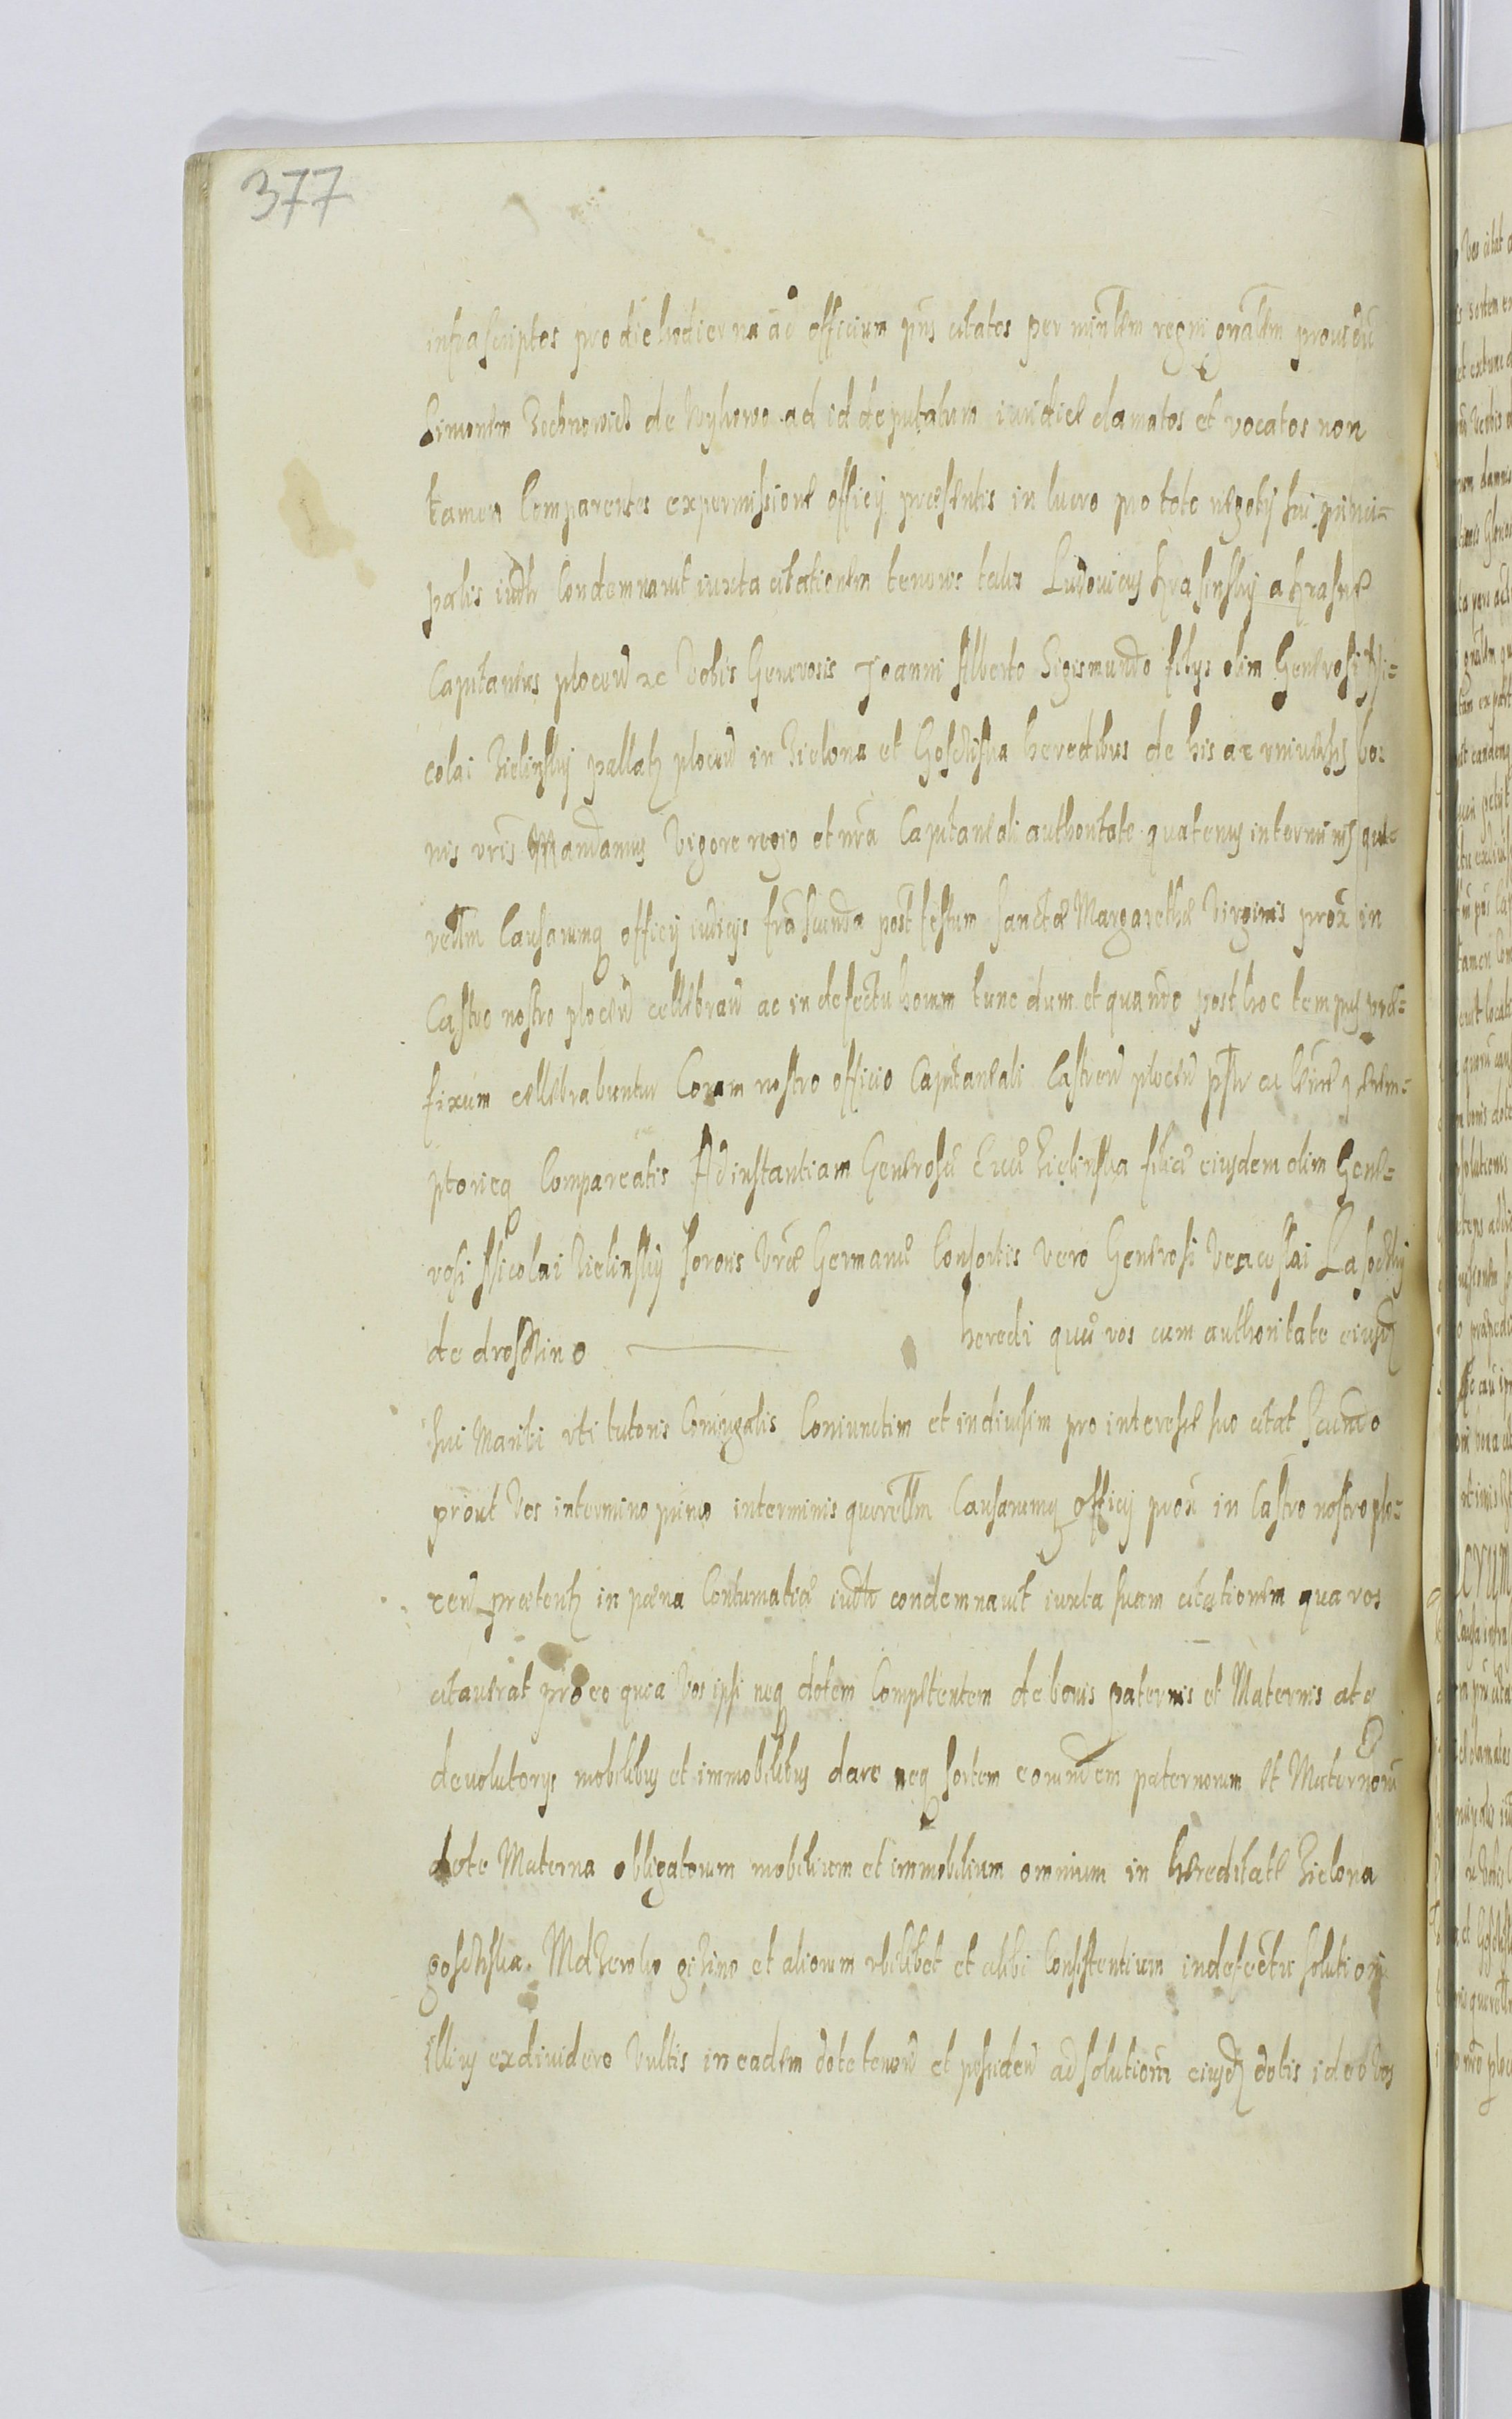 377
infrascriptos pro die hodierna ad officium pñs citatos per minlem regni gnalem prouidũ
Simonem de Wyhowo ad id deputatum iudicl clamatos et vocatos non
tamen Comparentes expermissione officij præsentis in lucro pro toto negotij sui princi-
palis iudtr Condemnarut iuxta citationem tenoris talis Ludouicus Krasinskij a Krasne
Capitaneus plocen ac Vobis Generosis Joanni Alberto Sigismundo filijs olim Generosi Ni-
colai Zielinskij pallatj plocen in Zielona et Goschiska heredibus de his ac vniuersis bo-
nis vris Mandamus Vigore regio et nra Capitaneali authoritate quatenus interminis que-
rellm Causarumq officij iudicijs fra secunda post festum Sanctæ Margarethæ Virginis prox in
Castro nostro plocen cellebran ac in defectu horum tunc dum et quando post hoc tempus præ-
fixum cellebrabuntur Coram nostro officio Capitaneali Castren plocen psltr et perem-
ptorieq Compareatis Ad instantiam Generosæ Euæ Zielinska filiæ eiusdem olim Gene-
rosi Nicolai Zielinskij sororis Vræ Germanæ Consortis vero Generosi Venceslai Lasoczkij
de droschino heredi quæ vos cum authoritate eiusd
sui Mariti vti tutoris Coniugalis Coniunctim et indiuisim pro interesse suo citat Secundo
prout Vos intermino primo interminis querellm Causarumq officij prox in Castro nostro plo-
cen prætentj in pæna Contumatiæ iudtr condemnauit iuxta suam citationem qua vos
citauerat pro eo quia Vos ipsi neq dotem Competentem de bonis paternis et Maternis atq
deuolutorijs mobilibus et immobilibus dare neq sortem eorundem paternorum et Maternorũ
dote Materna obligatorum mobilium et immobilium omnium in hæreditate Zielona
goschiska. gizino et aliorum vbilibet et alibi Consistentium indefectu solutionis
illius exdiuidere Vultis in eadem dote tenen et possiden ad solutionẽ eiusd dotis ideo Vos